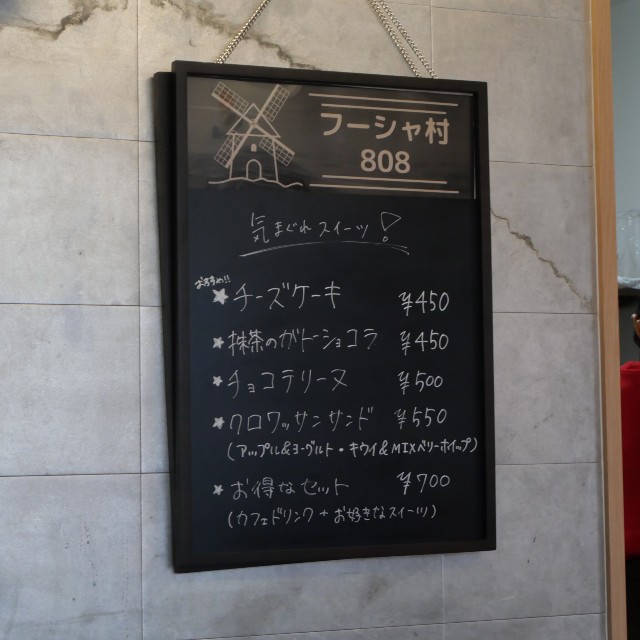 フーシャ村
808
気まぐれスイーツ!
おすすめ!!
★チーズケーキ ¥450
★抹茶のガトーショコラ ¥450
★チョコテリーヌ ¥500
★クロワッサンサンド ¥550
(アップル&ヨーグルト・キウイ&MIXベリーホイップ)
★お得なセット ¥700
(カフェドリンク+お好きなスイーツ)